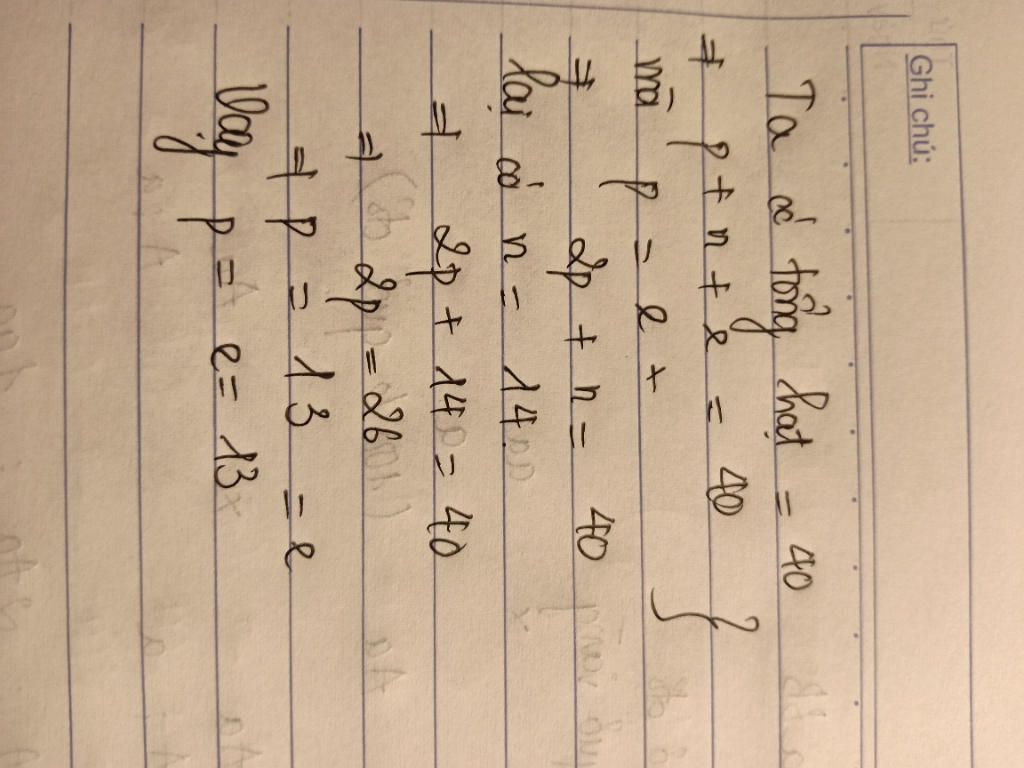 Ghi chú:
Ta có tổng hạt = 40
⇒ p + n + e = 40 }
mà p = e +
⇒ 2p + n = 40
lại có n = 14
⇒ 2p + 14 = 40
⇒ 2p = 26
⇒ p = 13 = e
Vậy p = e = 13